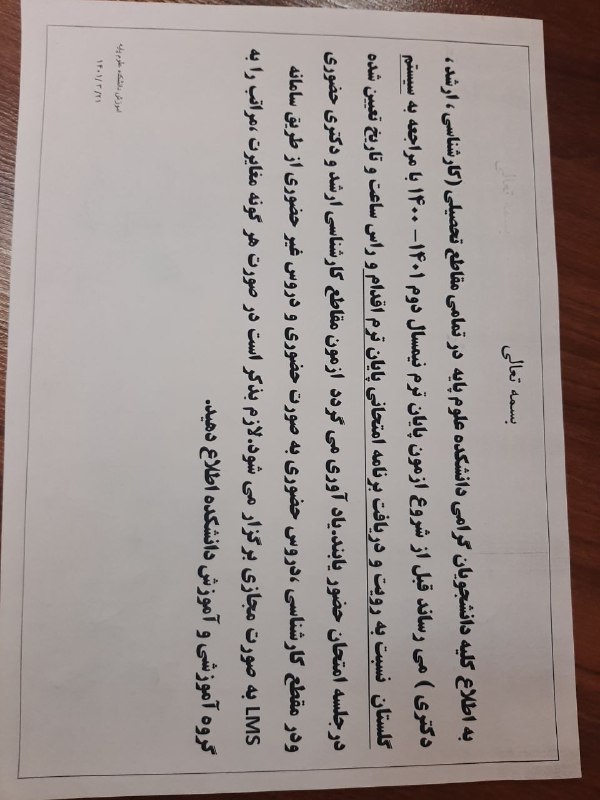 بسمه تعالی
به اطلاع کلیه دانشجویان گرامی دانشکده علوم پایه در تمامی مقاطع تحصیلی (کارشناسی ، ارشد ،
دکتری ) می رساند قبل از شروع ازمون پایان ترم نیمسال دوم ۱۴۰۱ – ۱۴۰۰ با مراجعه به سیستم
گلستان نسبت به رویت و دریافت برنامه امتحانی پایان ترم اقدام و راس ساعت و تاریخ تعیین شده
در جلسه امتحان حضور یابند.یاد آوری می گردد ازمون مقاطع کارشناسی ارشد و دکتری حضوری
ودر مقطع کارشناسی ،دروس حضوری به صورت حضوری و دروس غیر حضوری از طریق سامانه
LMS به صورت مجازی برگزار می شود.لازم بذکر است در صورت هر گونه مغایرت ،مراتب را به
گروه آموزشی و آموزش دانشکده اطلاع دهید.
آموزش دانشکده علوم پایه
۱۴۰۱/۳/۲۱